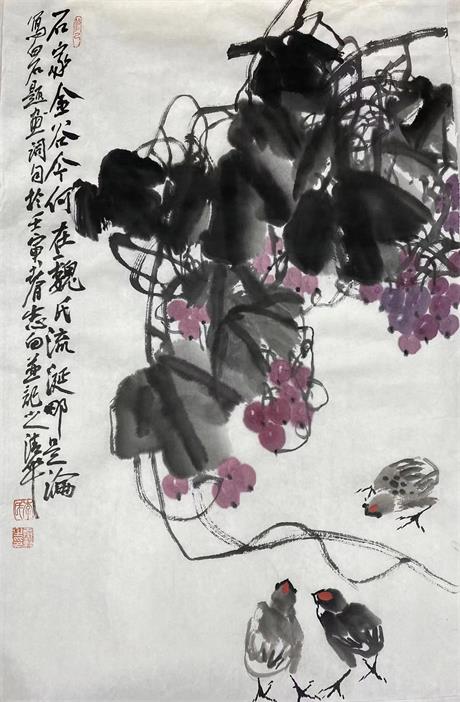 石家金谷今何在魏氏流涎那
寫白石題畫詞句於壬寅春志向並記之